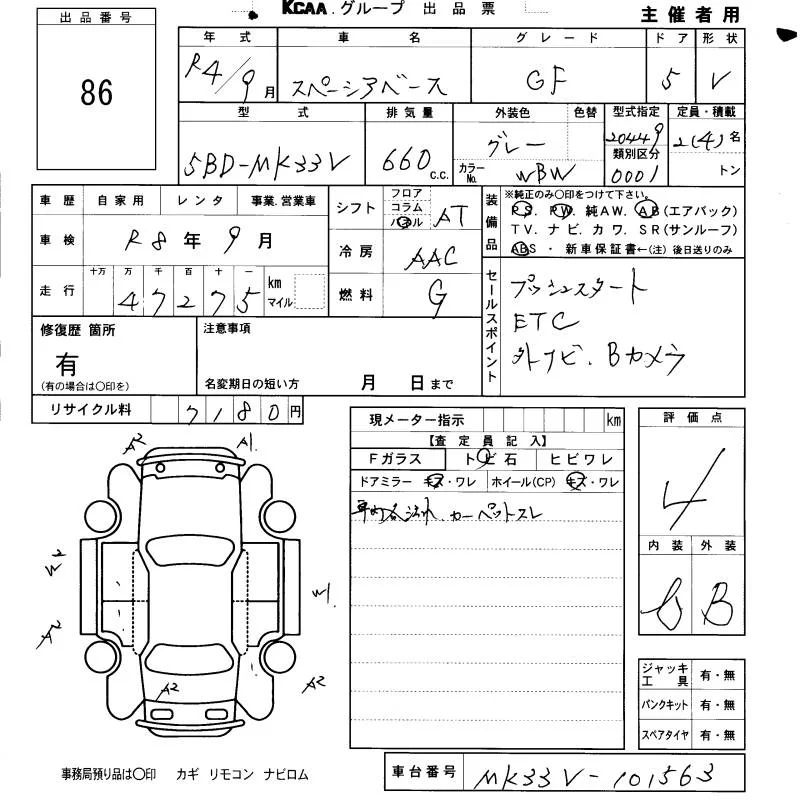 KCAA.グループ 出品票
主催者用
出品番号
86
年式 車名 グレード ドア 形状
R4/9月 スペーシアベース GF 5 V
型式 排気量 外装色 色替 型式指定 定員・積載
5BD-MK33V 660c.c. グレー 20449 2(4)名
カラーNo. WBW 類別区分 0001 トン
車歴 自家用 レンタ 事業.営業車
車検 R8年9月
走行 十万 万 千 百 十 一
47275 km マイル
シフト フロア コラム パネル AT
冷房 AAC
燃料 G
装備品
※純正のみ○印をつけて下さい。
PS. PW. 純AW. AB(エアバック)
TV. ナビ. カワ. SR(サンルーフ)
ABS・新車保証書←(注)後日送りのみ
セールスポイント
プッシュスタート
ETC
外ナビ.Bカメラ
修復歴 箇所
有
(有の場合は○印を)
注意事項
名変期日の短い方 月 日まで
リサイクル料 7180円
現メーター指示 km
【査定員記入】
Fガラス トビ石 ヒビワレ
ドアミラー キズ・ワレ ホイール(CP) キズ・ワレ
カーペットスレ
評価点
4
内装 外装
B
A2 A1
W2 W1
A2 A2
A2
ジャッキ工具 有・無
パンクキット 有・無
スペアタイヤ 有・無
事務局預り品は○印 カギ リモコン ナビロム
車台番号 MK33V-101563